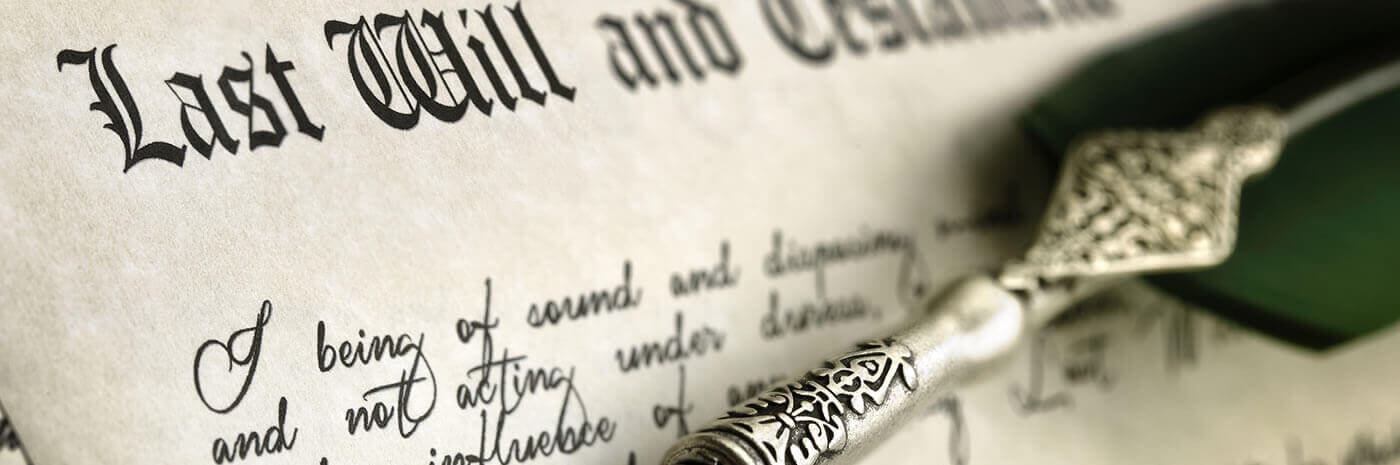 Last Will and Testament
I being of sound and disposing
and not acting under duress,
influence of